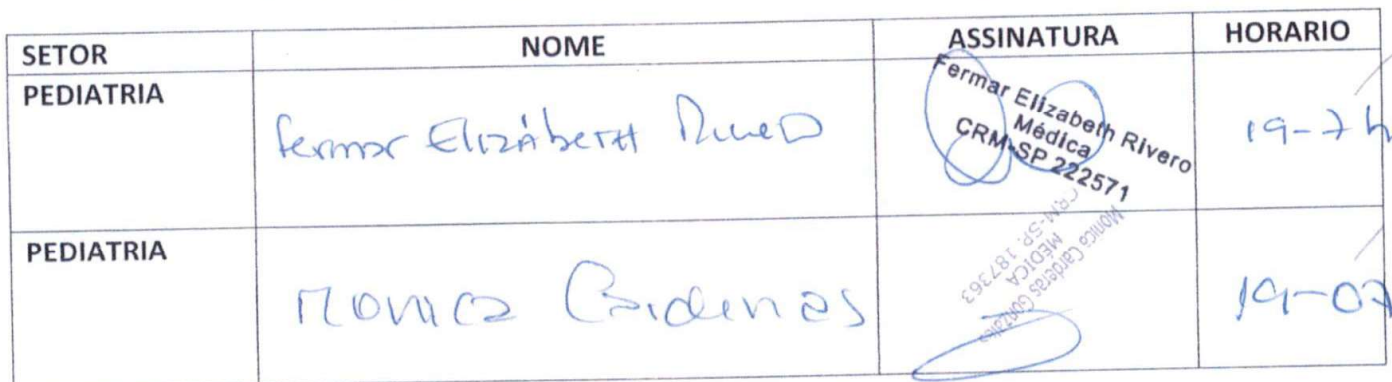 SETOR NOME ASSINATURA HORARIO
PEDIATRIA
Fermar Elizábeth Rivero
Fermar Elizabeth Rivero
Médica
CRM-SP 222571
19-7h
PEDIATRIA
Monica Cardenas
Monica Cardenas Gonzalez
MÉDICA
CRM-SP. 187363
19-07